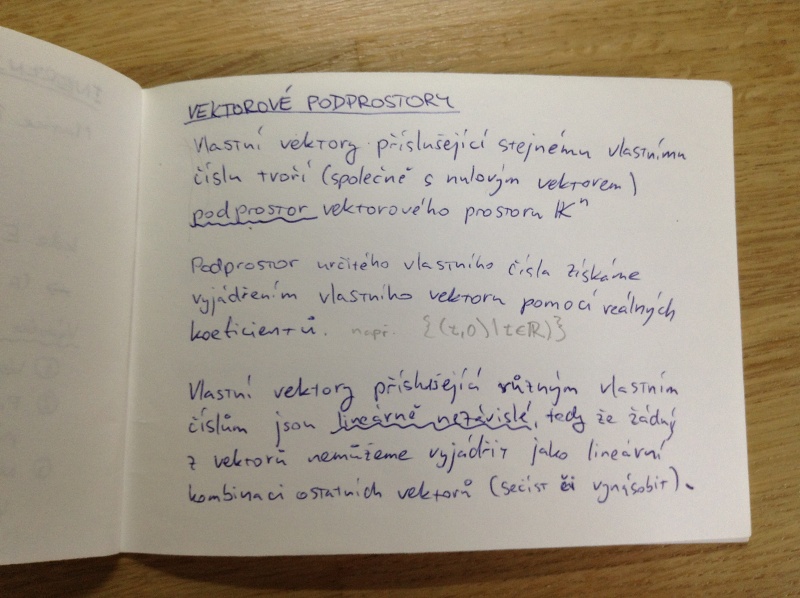 VEKTOROVÉ PODPROSTORY
Vlastní vektory příslušející stejnému vlastnímu
číslu tvoří (společně s nulovým vektorem)
podprostor vektorového prostoru 𝕂ⁿ
Podprostor určitého vlastního čísla získáme
vyjádřením vlastního vektoru pomocí reálných
koeficientů. např. {(t,0) | t∈ℝ)}
Vlastní vektory příslušející různým vlastním
číslům jsou lineárně nezávislé, tedy že žádný
z vektorů nemůžeme vyjádřit jako lineární
kombinaci ostatních vektorů (sečíst či vynásobit).